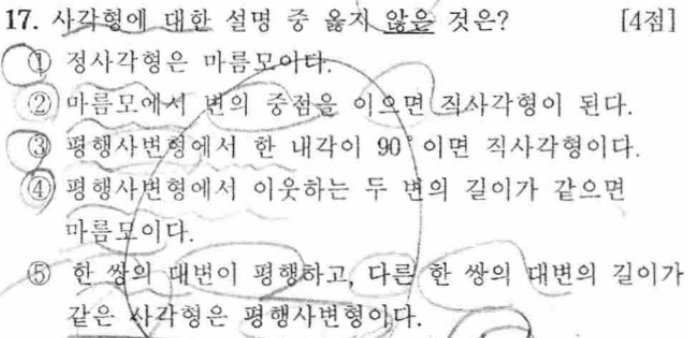 17. 사각형에 대한 설명 중 옳지 않은 것은? [4점]
① 정사각형은 마름모이다.
② 마름모에서 변의 중점을 이으면 직사각형이 된다.
③ 평행사변형에서 한 내각이 90°이면 직사각형이다.
④ 평행사변형에서 이웃하는 두 변의 길이가 같으면
마름모이다.
⑤ 한 쌍의 대변이 평행하고, 다른 한 쌍의 대변의 길이가
같은 사각형은 평행사변형이다.